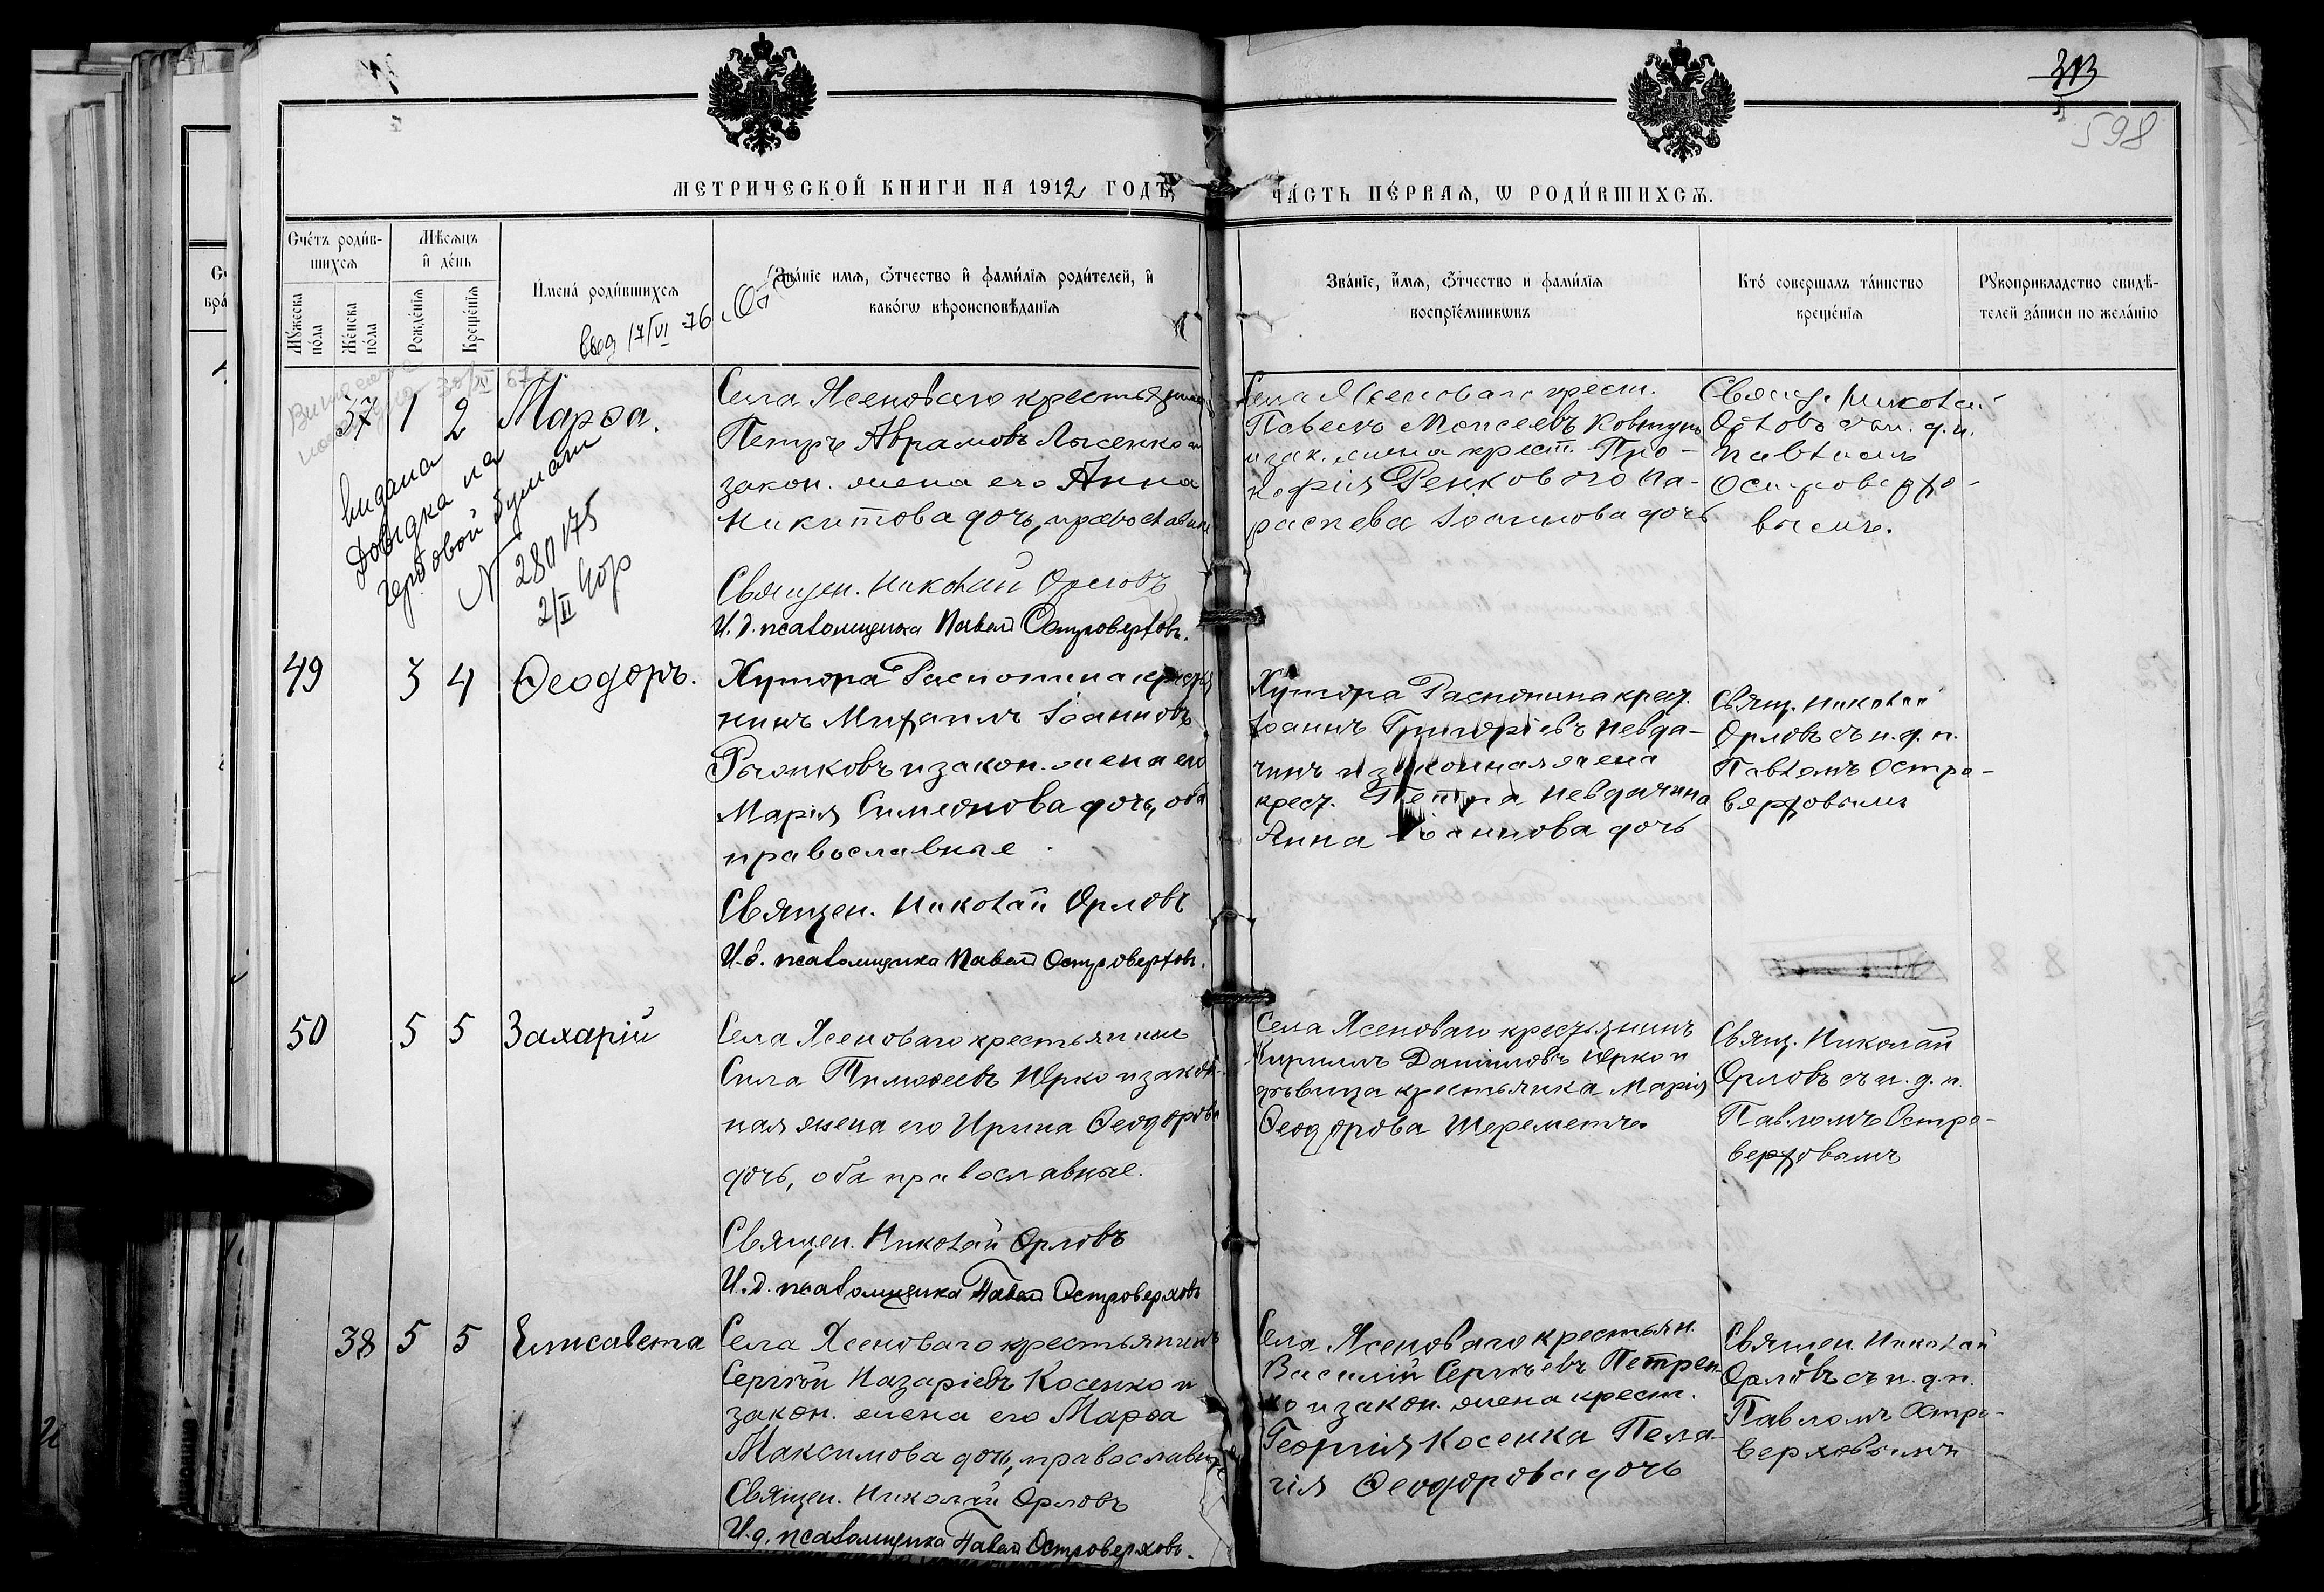 313
5
598
МЕТРИЧЕСКОЙ КНИГИ НА 1912 ГОДЪ,
ЧАСТЬ ПЕРВАЯ, Ѡ РОДИВШИХСЯ.
Счетъ родив-
шихся
Мѣсяцъ
и день
Имена родившихся
Званіе имя, отчество и фамилія родителей, и
какогѡ вѣроисповѣданія
Званіе, имя, отчество и фамилія
воспріемникѡвъ
Кто совершалъ таинство
крещенія
Рукоприкладство свидѣ-
телей записи по желанію
Мужеска
пола
Женска
пола
Рожденія
Крещенія
17/VI 76
37 1 2 Марѳа.
видана
Довідка на
гербовой бумаги
N 280175
2/II
Села Ясеноваго крестьянинъ
Петръ Аврамовъ Лысенко и
закон. жена его Анна
Никитова дочь, православные
Священ. Николай Орловъ
И. д. псаломщика Павелъ Островерховъ.
Села Ясеноваго крест.
Павелъ Моисеевъ Ковтунъ
и зак. жена крест. Про-
кофія Ренкового Па-
раскева Іоаннова дочь
Свящ. Николай
Орловъ съ и. д. п.
Павломъ
Островерхо-
вымъ.
49 3 4 Ѳеодоръ.
Хутора Распопина крестья
нинъ Михаилъ Іоанновъ
Рыжковъ и закон. жена его
Марія Симеонова дочь, оба
православные
Священ. Николай Орловъ
И. д. псаломщика Павелъ Островерховъ.
Хутора Распопина крест.
Іоаннъ Григоріевъ Невда-
чинъ и законная жена
крест. Петра Невдачина
Анна Іоаннова дочь
Свящ. Николай
Орловъ съ и. д. п.
Павломъ Остро-
верховымъ
50 5 5 Захарій
Села Ясеноваго крестьянинъ
Сила Тимоѳеевъ Ярко и закон-
ная жена его Ирина Ѳеодорова
дочь, оба православные.
Священ. Николай Орловъ
И. д. псаломщика Павелъ Островерховъ
Села Ясеноваго крестьянинъ
Кириллъ Данииловъ Ярко и
дѣвица крестьянка Марія
Ѳеодорова Шереметче.
Свящ. Николай
Орловъ съ и. д. п.
Павломъ Остро-
верховымъ
38 5 5 Елисавета
Села Ясеноваго крестьянинъ
Сергѣй Назаріевъ Косенко и
закон. жена его Марѳа
Максимова дочь, православные
Священ. Николай Орловъ
И. д. псаломщика Павелъ Островерховъ.
Села Ясеноваго крестьян.
Василій Сергѣевъ Петрен-
ко и закон. жена крест.
Георгія Косенка Пела-
гія Ѳеодорова дочь
Священ. Николай
Орловъ съ и. д. п.
Павломъ Остро-
верховымъ